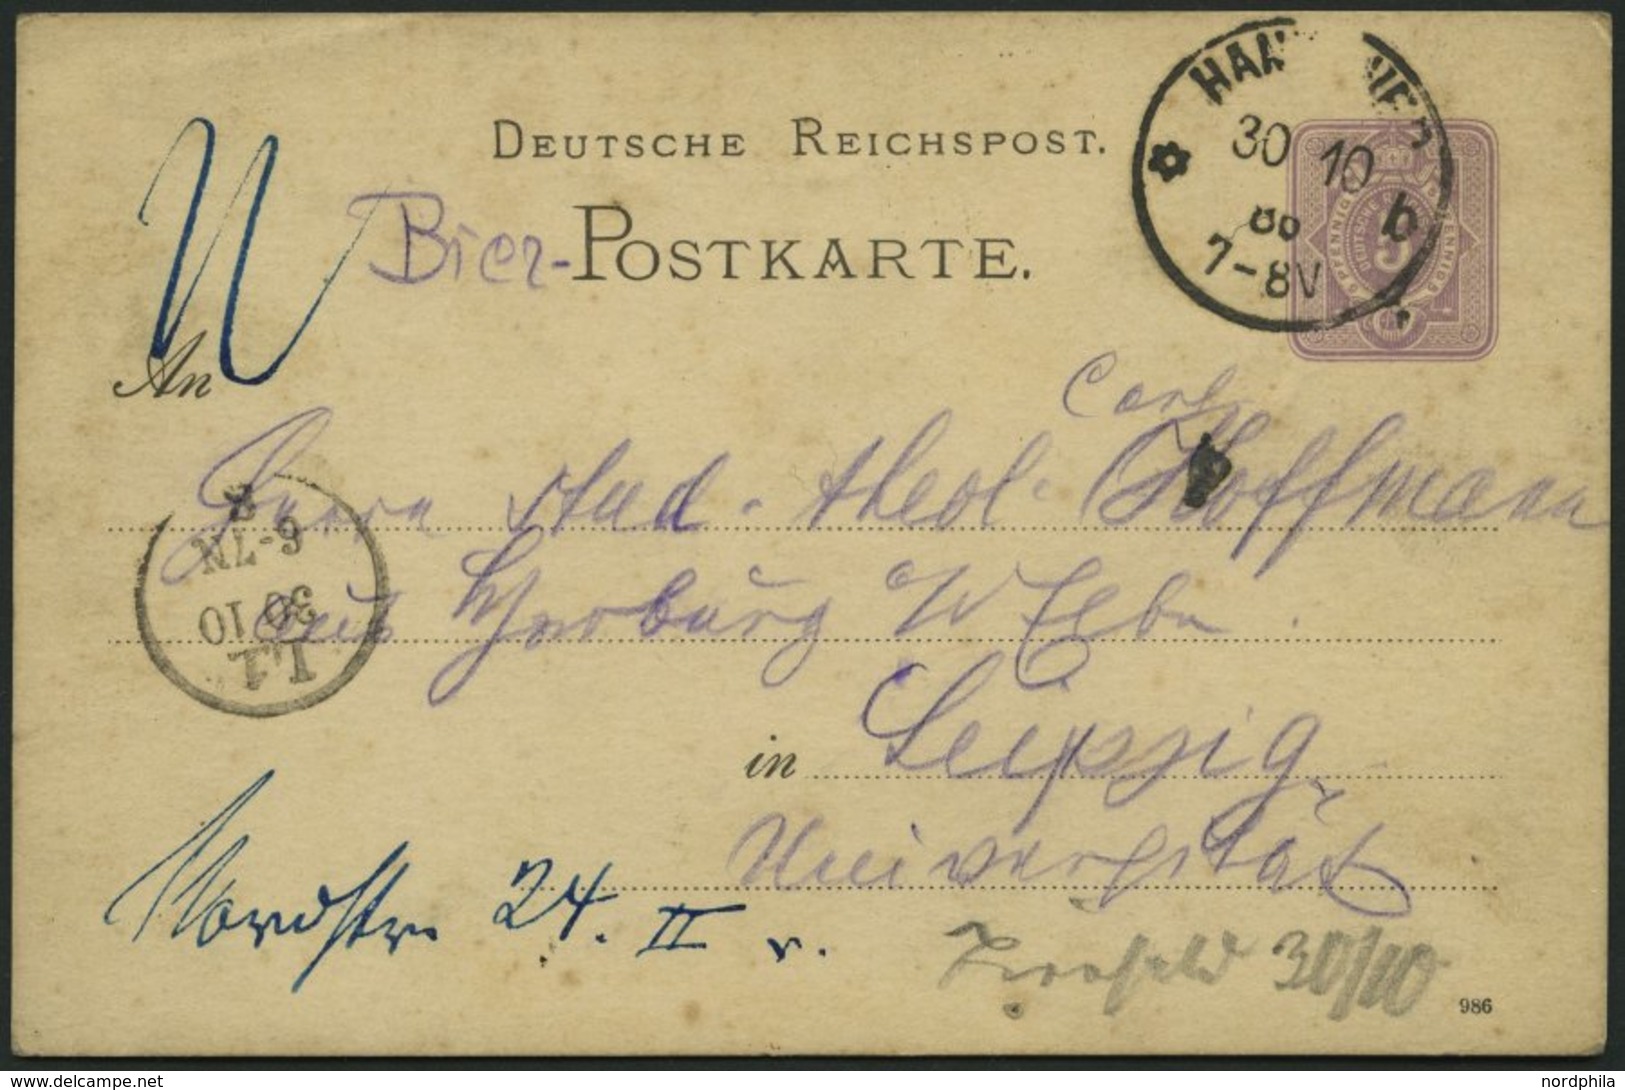 DEUTSCHE REICHSPOST.
Bier-POSTKARTE.
HAN VER
30 10
86 b
7-8V
5 PFENNIG
An
Carl
Herrn stud. theol. Hoffmann
aus Harburg a/ Elbe.
in Leipzig,
Universität
Nordstr. 24. II r.
6-7N
30 10
L.1
30/10
986
delcampe.net
nordphila